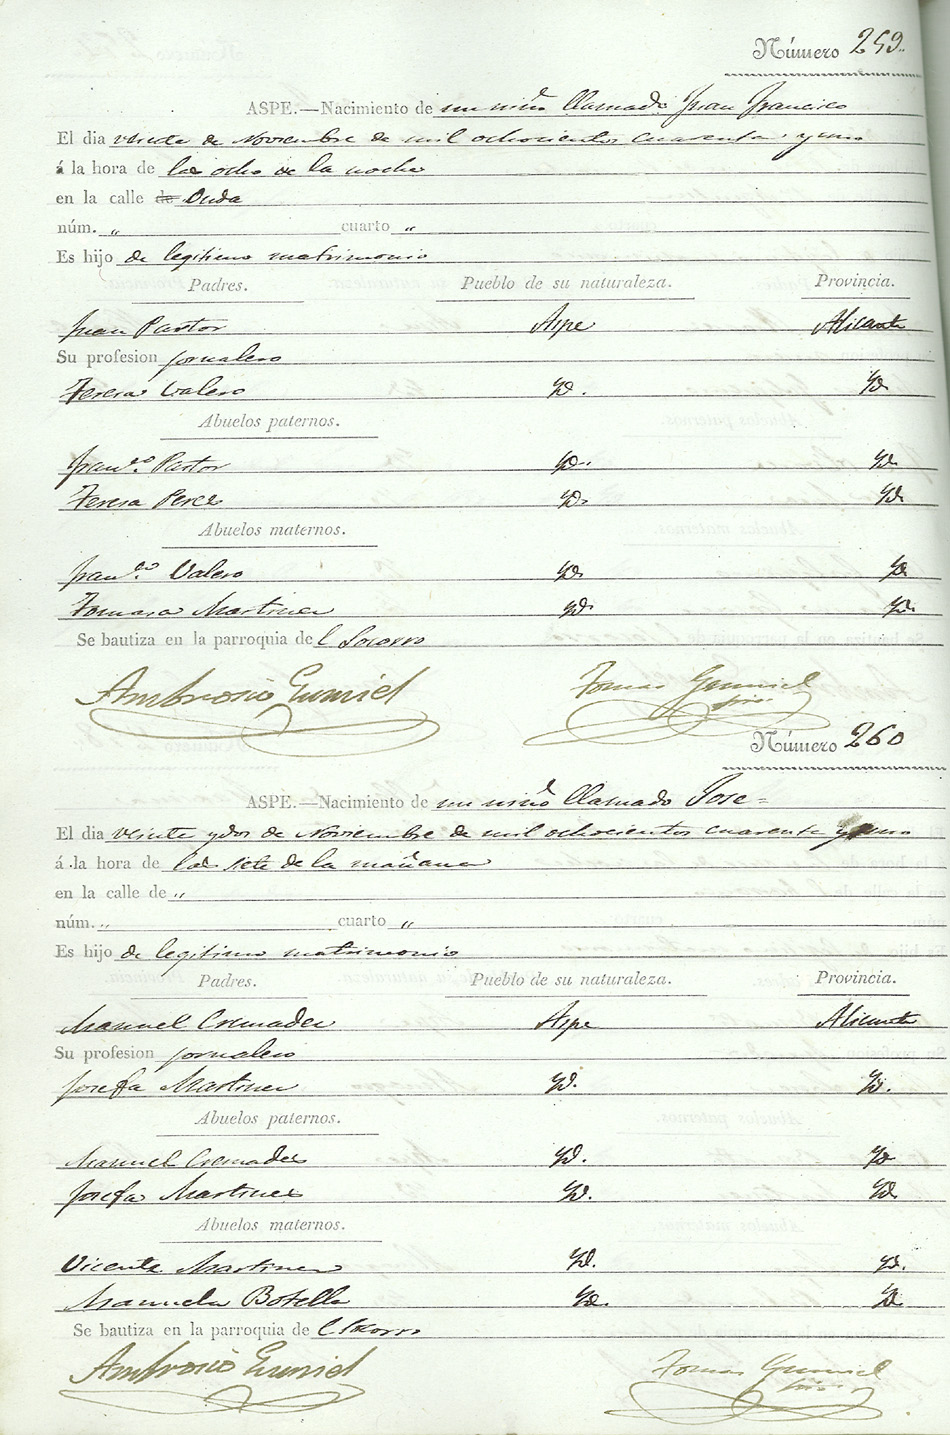 Número 259.
ASPE.—Nacimiento de un niño llamado Juan Francisco
El dia veinte de Noviembre de mil ochocientos cuarenta y uno
á la hora de las ocho de la noche
en la calle de Onda
núm. „ cuarto „
Es hijo de legitimo matrimonio
Padres. Pueblo de su naturaleza. Provincia.
Juan Pastor Aspe Alicante
Su profesion jornalero
Teresa Valero Yd. Yd
Abuelos paternos.
Fran.co Pastor Yd. Yd
Teresa Perez Yd. Yd
Abuelos maternos.
Fran.co Valero Yd Yd
Tomasa Martinez Yd. Yd.
Se bautiza en la parroquia del Socorro
Ambrosio Gumiel Tomas Gumiel
Número 260
ASPE.—Nacimiento de un niño llamado Jose=
El dia veinte y dos de Noviembre de mil ochocientos cuarenta y uno
á la hora de las siete de la mañana
en la calle de „
núm. „ cuarto „
Es hijo de legitimo matrimonio
Padres. Pueblo de su naturaleza. Provincia.
Manuel Cremades Aspe Alicante
Su profesion jornalero
Josefa Martinez Yd. Yd.
Abuelos paternos.
Manuel Cremades Yd. Yd
Josefa Martinez Yd. Yd
Abuelos maternos.
Vicente Martinez Yd. Yd.
Manuela Botella Yd. Yd
Se bautiza en la parroquia del Socorro
Ambrosio Gumiel Tomas Gumiel